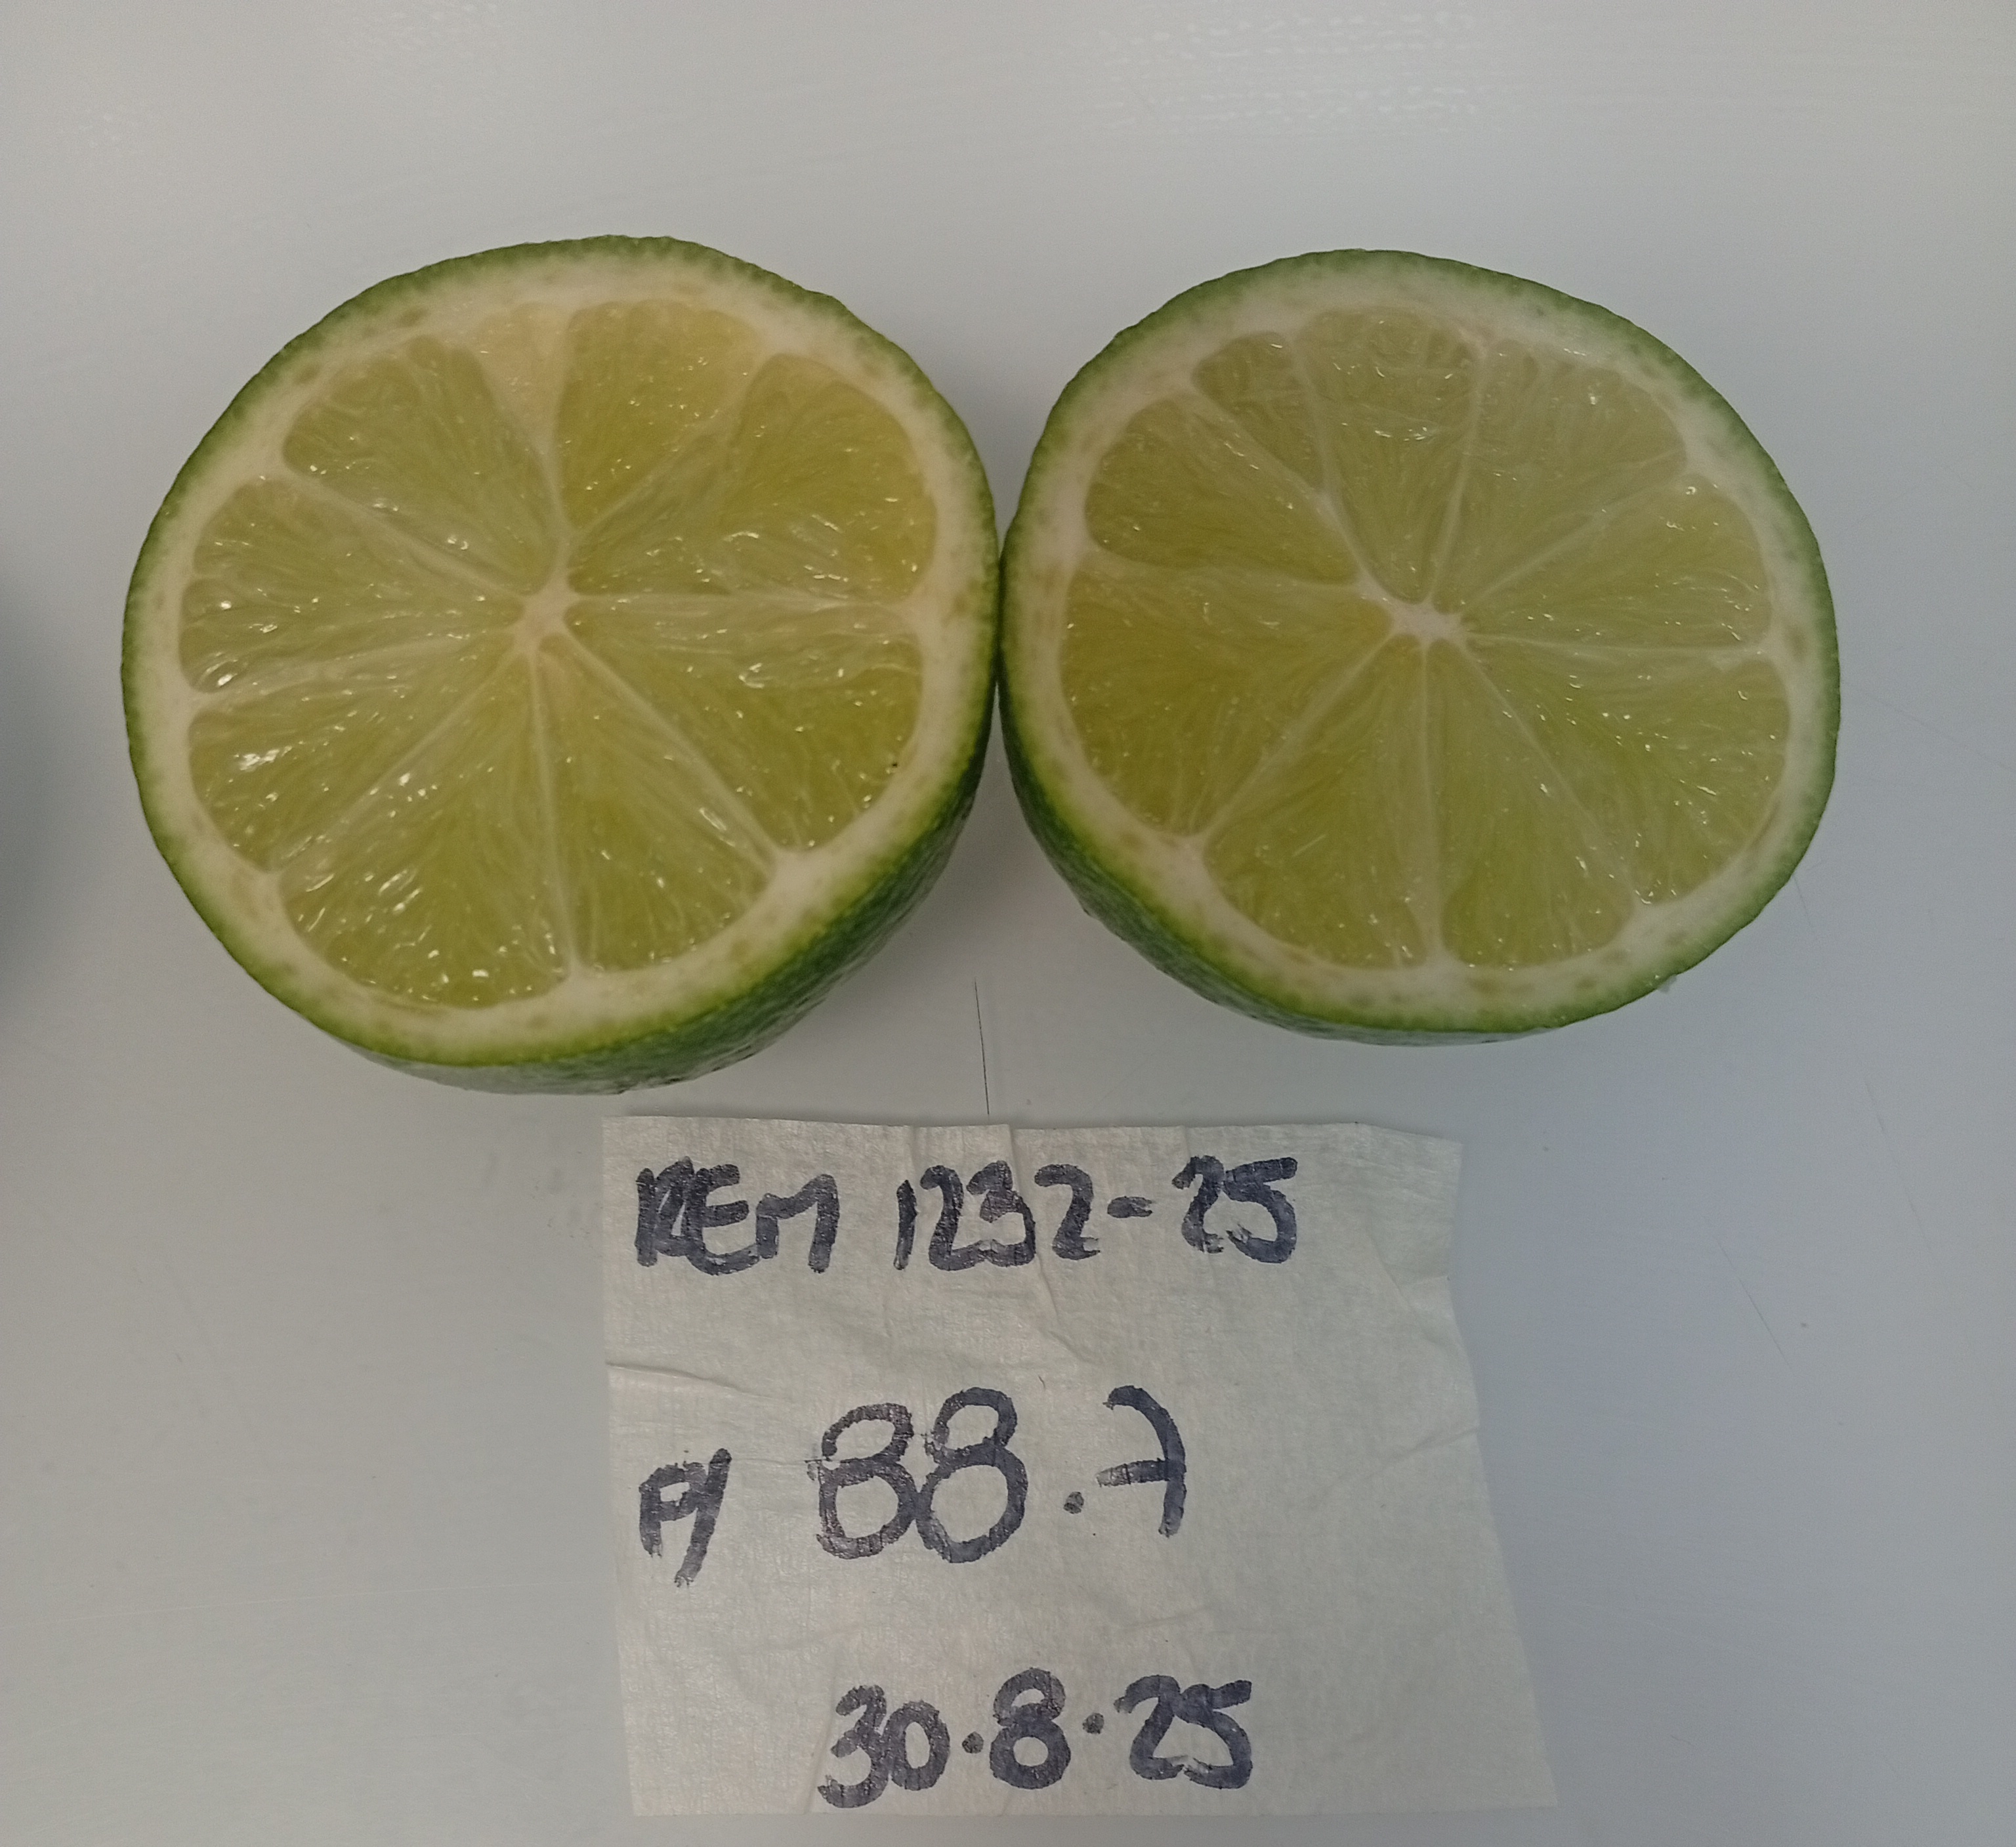 REM 1232-25
P/ 88.7
30.8.25